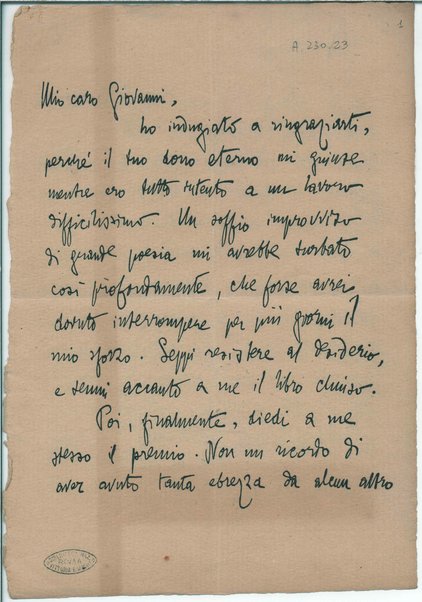 1
A. 230.23
Mio caro Giovanni,
ho indugiato a ringraziarti,
perché il tuo dono eterno mi giunse
mentre ero tutto intento a un lavoro
difficilissimo. Un soffio improvviso
di grande poesia mi avrebbe turbato
così profondamente, che forse avrei
dovuto interrompere per più giorni il
mio sforzo. Seppi resistere al desiderio,
e tenni accanto a me il libro chiuso.
Poi, finalmente, diedi a me
stesso il premio. Non mi ricordo di
aver avuto tanta ebrezza da alcun altro
ROMA